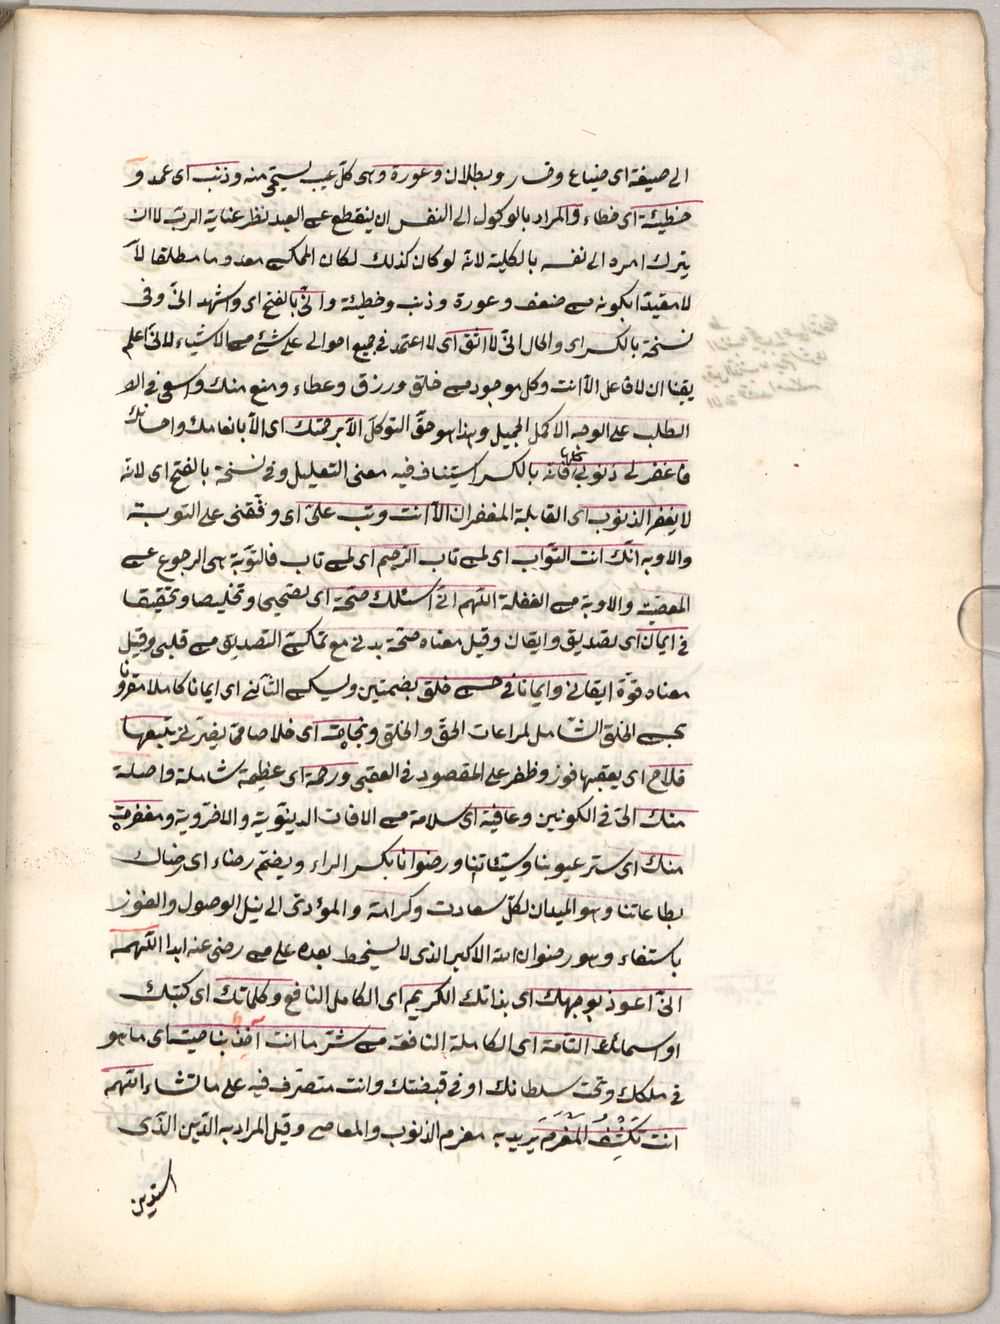 الى ضيعة اى ضياع وفساد وبطلان وعورة وهى كلّ عيب يستحى منه وذنب اى عمد و
خطيئة اى خطاء والمراد بالوكول الى النفس ان ينقطع عن العبد نظر عناية الربّ لا ان
يترك امره الى نفسه بالكلية لانه لو كان كذلك لكان الممكن معدوما مطلقا لا
لا مقيدا بكونه من ضعف وعورة وذنب وخطيئة وانّى بالفتح اى واشهد انّى وفى
نسخة بالكسر اى والحال انّى لا اثق اى لا اعتمد فى جميع احوالى على شئ من الاشياء لانّى اعلم
يقينا ان لا فاعل الّا انت وكل موجود من خلق ورزق وعطاء ومنع منك واسعى فى
الطلب على الوجه الاكمل الجميل وهذا هو حقّ التوكل الّا برحمتك اى الّا بانعامك واحسانك
فاغفر لى ذنوبى كلها فانه بالكسر استيناف فيه معنى التعليل وفى نسخة بالفتح اى لانه
لا يغفر الذنوب اى القابلة المغفرة الّا انت وتب علىّ اى ووفّقنى على التوبة
والاوبة انّك انت التوّاب اى لمن تاب الرّحيم اى لمن تاب فالتوبة هى الرجوع عن
المعصية والاوبة من الغفلة اللّهم انّى اسئلك صحّة اى تصحيحا وتخليصا وتحقيقا
فى ايمان اى تصديق وايقان وقيل معناه صحّة بدنى مع تمكن التصديق من قلبى وقيل
معناه قوّة ايقانى وايمانا فى حسن خلق بضمتين ويسكن الثانى اى ايمانا كاملا مقرونا
بحسن الخلق الشامل لمراعات الحقّ والخلق ونجاة اى خلاصا يتبعها
فلاح اى يعقبها فوز وظفر على المقصود فى العقبى ورحمة اى عظيمة شاملة واصلة
منك الىّ فى الكونين وعافية اى سلامة من الافات الدنيويّة والاخروية ومغفرة
منك اى ستر عيوبنا وسيّئاتنا ورضوانا بكسر الراء ويضمّ رضاء اى رضاك
بطاعاتنا وهو الميدان لكلّ سعادت وكرامة والمؤدى الى نيل الوصول والفوز
وهو رضوان الله الاكبر الذى لا يسخط بعده على من رضى عنه ابدا اللّهم
انّى اعوذ بوجهك اى بذاتك الكريم اى الكامل النافع وكلماتك اى كتبك
او اسمائك التّامة اى الكاملة النافعة من شرّ ما انت آخذ بناصيته اى ما هو
فى ملكك وتحت سلطانك او فى قبضتك وانت متصرّف فيه على ما تشاء اللّهم
انت تَكْشِفُ المَغْرَمَ يريد به مغرم الذنوب والمعاصى وقيل المراد به الدّين الذى
استدين